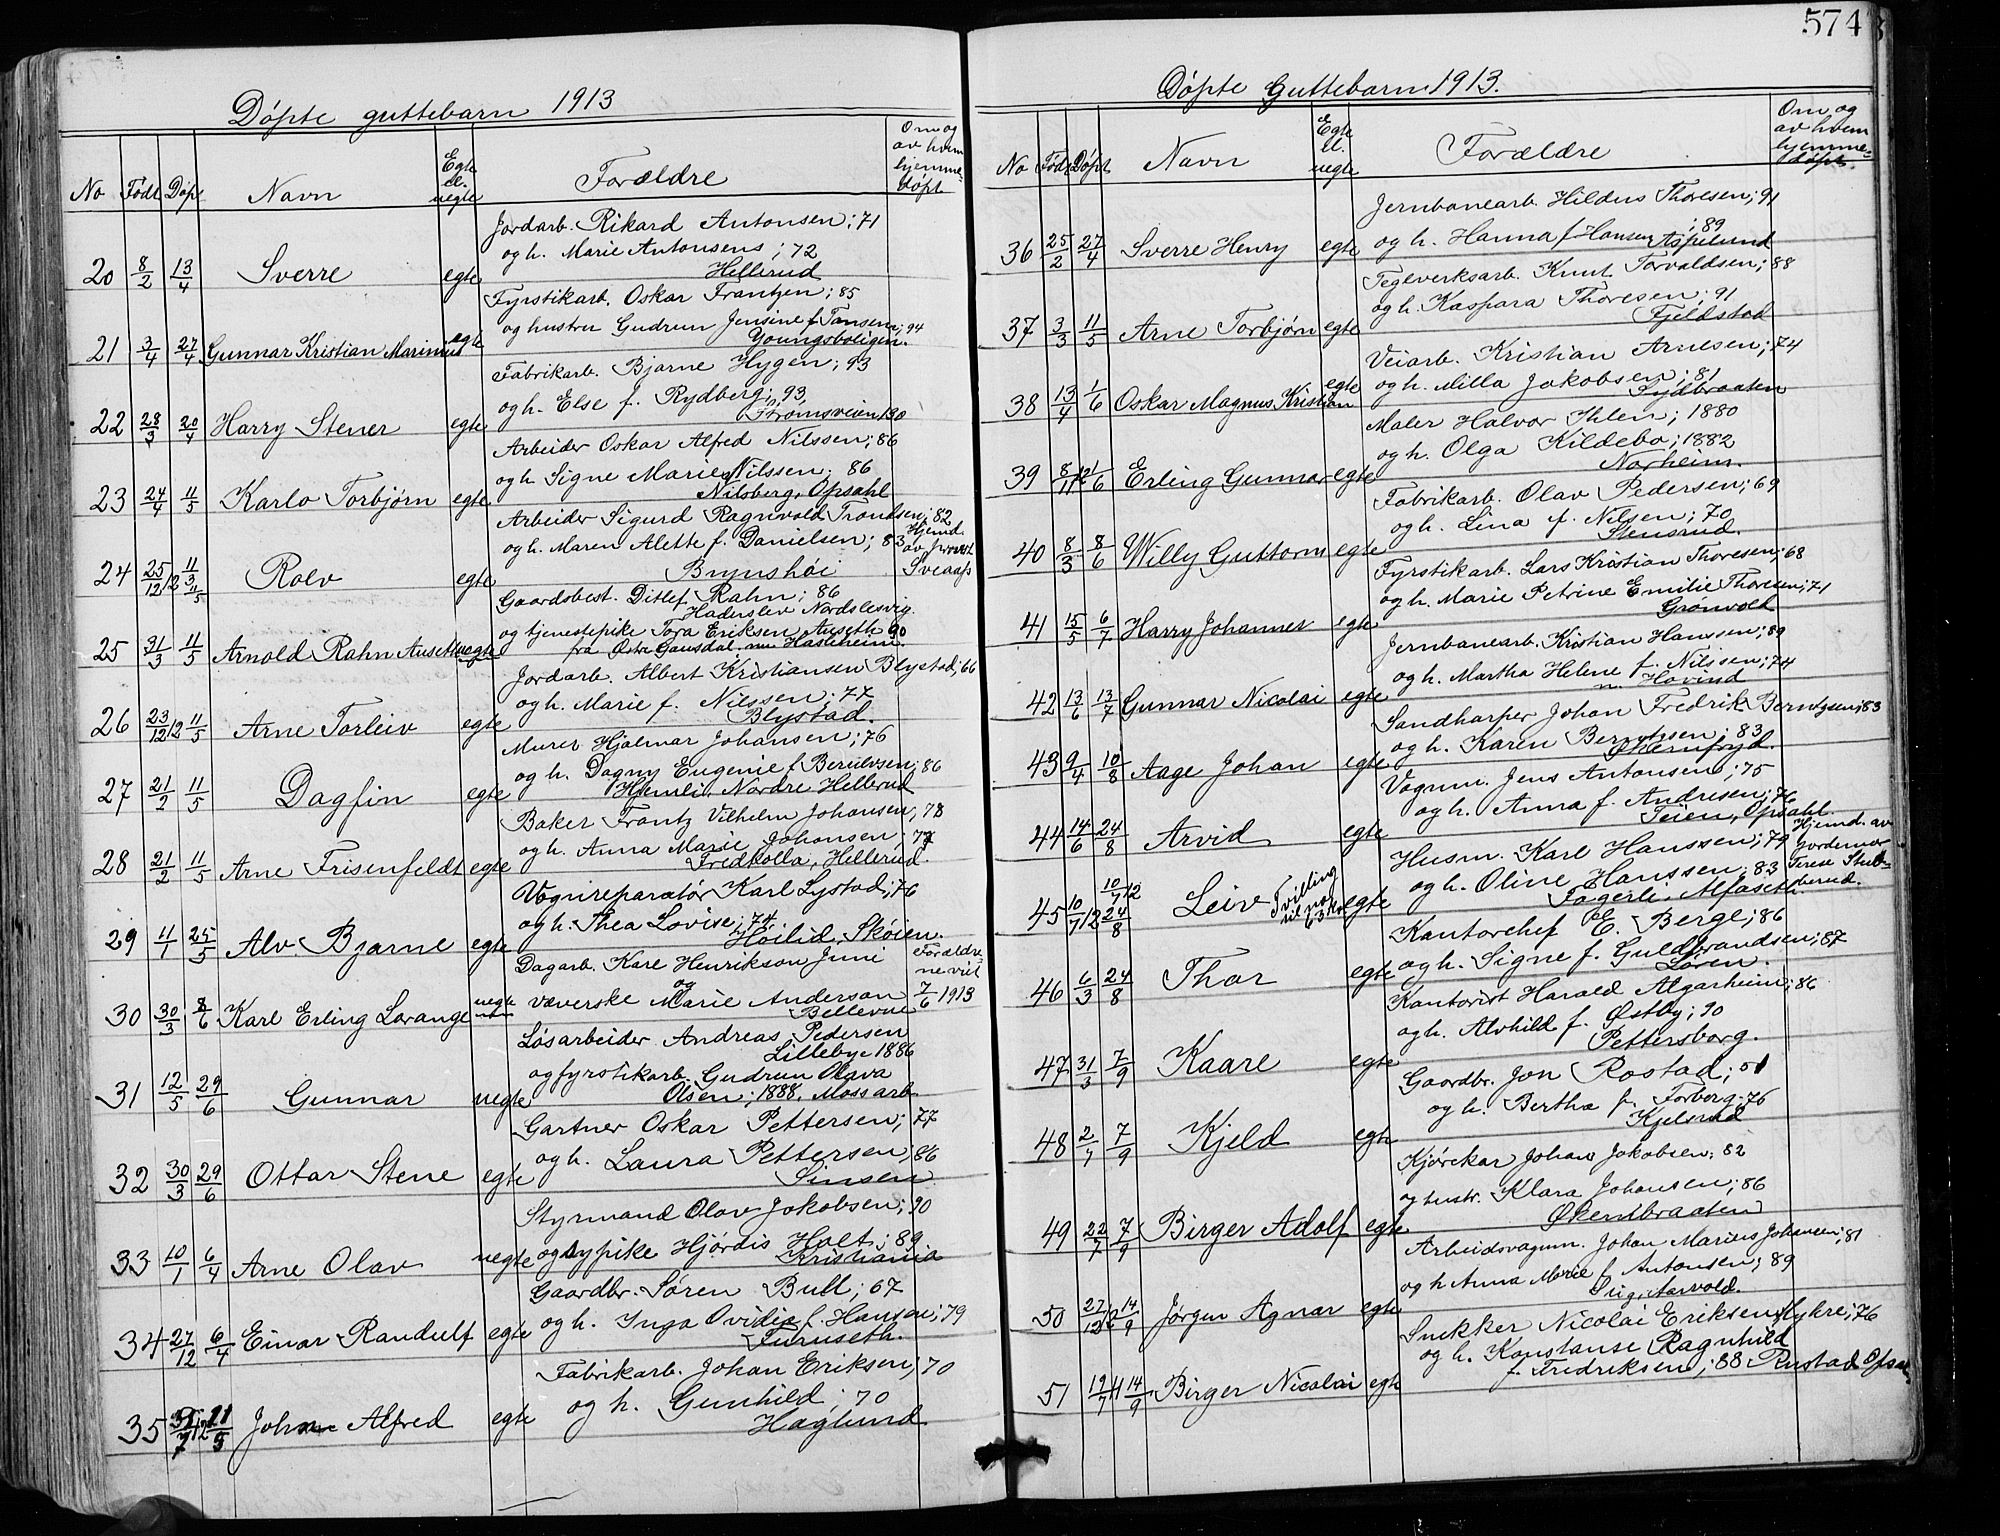 574
Døpte guttebarn 1913
No Født Døpt Navn Egte el. uegte Forældre Om og av hvem hjemmedøpt
20 8/2 13/4 Sverre egte Jordarb. Rikard Antonsen; 71
og h. Marie Antonsens; 72
Hellerud
21 3/4 27/4 Gunnar Kristian Marinius egte Fyrstikarb. Oskar Frantzen; 85
og hustru Gudrun Jensine f. Tansem; 94
Youngsboligen.
22 28/3 20/4 Harry Stener egte Fabrikarb. Bjarne Hygen; 93
og h. Else f. Rydberg; 93
Strømsveien 130
23 24/4 11/5 Karlo Torbjørn egte Arbeider Oskar Alfred Nilssen; 86
og h. Signe Marie Nilssen; 86
Nilsberg, Opsahl
24 25/12 12 11/5 Rolv egte Arbeider Sigurd Ragnvold Trondsen; 82
og h. Maren Alette f. Danielsen; 83
Brynshøi
Hjemd. av provst Sveaas
25 31/3 11/5 Arnold Rahn Auseth uegte Gaardsbest. Ditlef Rahn; 86
Haderslev Nordslesvig.
og tjenestepike Tora Eriksen Auseth 90
fra Østre Gausdal, nu Hasleheim.
26 23/12 12 11/5 Arne Torleiv egte Jordarb. Albert Kristiansen Blystad; 66
og h. Marie f. Nilssen; 77
Blystad.
27 21/2 11/5 Dagfin egte Murer Hjalmar Johansen; 76
og h. Dagny Eugenie f. Berulvsen; 86
Hemli, Nordre Hellerud
28 21/2 11/5 Arne Frisenfeldt egte Baker Frantz Vilhelm Johansen; 78
og h. Anna Marie Johansen; 77
Fredkolla, Hellerud.
29 11/1 25/5 Alv Bjarne egte Vognreparatør Karl Lystad; 76
og h. Thea Lovise; 74
Høilid, Skøien.
30 30/3 8/6 Karl Erling Lorange uegte Dagarb. Karl Henrikson Juni
og
væverske Marie Anderson
Bellevue
Forældrene viet 7/6 1913
31 12/5 29/6 Gunnar uegte Løsarbeider Andreas Pedersen
Lilleby 1886
og fyrstikarb. Gudrun Olava
Olsen; 1888. Moss arb.
32 30/3 29/6 Ottar Stene egte Gartner Oskar Pettersen; 77
og h. Laura Pettersen; 86
Sinsen
33 10/1 6/4 Arne Olav uegte Styrmand Olav Jakobsen; 90
og sypike Hjørdis Holt; 89
Kristiania
34 27/12 6/4 Einar Randulf egte Gaardbr. Søren Bull; 67
og h. Inga Ovidia f. Hansen; 79
Furuseth.
35 12 11/5 Johan Alfred egte Fabrikarb. Johan Eriksen; 70
og h. Gunhild; 70
Haglund
Døpte Guttebarn 1913.
No Født Døpt Navn Egte el. uegte Forældre Om og av hvem hjemmedøpt.
36 25/2 27/4 Sverre Henry egte Jernbanearb. Hildus Thoresen; 91
og h. Hanna f. Hansen; 89
Aspelund
37 3/3 11/5 Arne Torbjørn egte Teglverksarb. Knut Torvaldsen; 88
og h. Kaspara Thoresen; 91
Fjeldstad
38 13/4 1/6 Oskar Magnus Kristian egte Veiarb. Kristian Arnesen; 74
og h. Milla Jakobsen; 81
Tydbraaten
39 8/11 12 1/6 Erling Gunnar egte Maler Halvor Ihlen; 1880
og h. Olga Kildebo; 1882
Norheim.
40 8/3 8/6 Willy Guttorm egte Fabrikarb. Olav Pedersen; 69
og h. Lina f. Nilsen; 70
Stensrud.
41 15/5 6/7 Harry Johannes egte Fyrstikarb. Lars Kristian Thoresen; 68
og h. Marie Petrine Emilie Thoresen; 71
Grønvold
42 13/6 13/7 Gunnar Nicolai egte Jernbanearb. Kristian Hanssen; 89
og h. Martha Helene f. Nilssen; 74
n. Hovind
43 9/4 10/8 Aage Johan egte Sandharper Johan Fredrik Berntzsen; 83
og h. Karen Berntzsen; 83
Økernfryd.
44 14/6 24/8 Arvid egte Vognm. Jens Antonsen; 75
og h. Anna f. Andresen; 76
Teien, Opsahl.
45 10/7 12 10/7 12 24/8 Leiv Tvilling til no 63 kv. egte Husm. Karl Hanssen; 79
og h. Oline Hanssen; 83
Fagerli, Alfaseth.
Hjemd. av jordemor Terese Stubberud.
46 6/3 24/8 Thor egte Kantorchef E. Berge; 86
og h. Signe f. Guldbrandsen; 87
Løren.
47 31/3 7/9 Kaare egte Kantorist Harald Algarheim; 86
og h. Alvhild f. Østby; 90
Pettersborg.
48 2/7 7/9 Kjeld egte Gaardbr. Jon Rostad; 51
og h. Bertha f. Forberg; 76
Kjelsrud
49 22/7 7/9 Birger Adolf egte Kjørekar Johan Jakobsen; 82
og hustr. Klara Johansen; 86
Økernbraaten
50 27/12 12 14/9 Jørgen Agnar egte Arbeidsvognm. Johan Marius Johansen; 81
og h. Anna Marie f. Antonsen; 89
Sug, Aarvold.
51 19/7 11 14/9 Birger Nicolai egte Snekker Nicolai Eriksen Lykre; 76
og h. Konstanse Ragnhild
f. Fredriksen; 88 Rustad Opsal